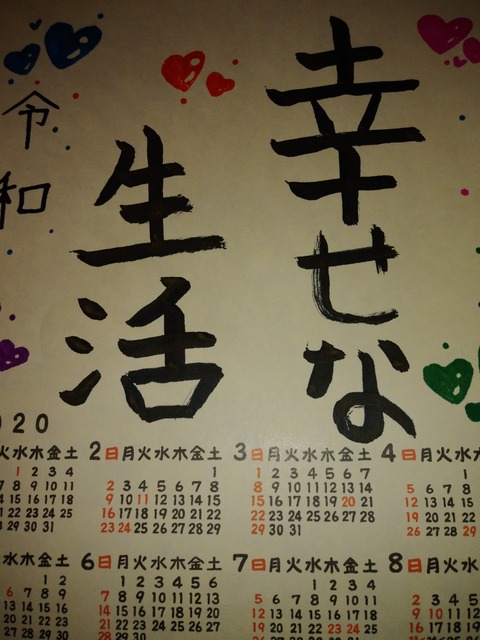 幸せな
生活
令和
2020
水木金土 2日月火水木金土 3日月火水木金土 4日月火水
1 2 3 4 1 1 2 3 4 5 6 7 1
7 8 9 10 11 2 3 4 5 6 7 8 8 9 10 11 12 13 14 5 6 7 8
14 15 16 17 18 9 10 11 12 13 14 15 15 16 17 18 19 20 21 12 13 14 15
22 23 24 25 16 17 18 19 20 21 22 22 23 24 25 26 27 28 19 20 21 22
28 29 30 31 23 24 25 26 27 28 29 29 30 31 26 27 28 29
水木金土 6日月火水木金土 7日月火水木金土 8日月火水
1 2 1 2 3 4 5 6 1 2 3 4
6 7 8 9 7 8 9 10 11 12 13 5 6 7 8 9 10 11 2 3 4 5
13 14 15 16 14 15 16 17 18 19 20 12 13 14 15 16 17 18 9 10 11 12
20 21 22 23 21 22 23 24 25 26 27 19 20 21 22 23 24 25 16 17 18 19
27 28 29 30 28 29 30 26 27 28 29 30 31